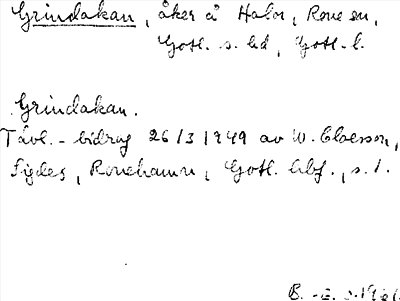 Grindakan, åker å Halor, Rone sn,
Gotl. s. hd, Gotl. l.
Grindakan.
Tävl.-bidrag 26/3 1949 av W. Claesson,
Figdes, Ronehamn, Gotl. , s. 1.